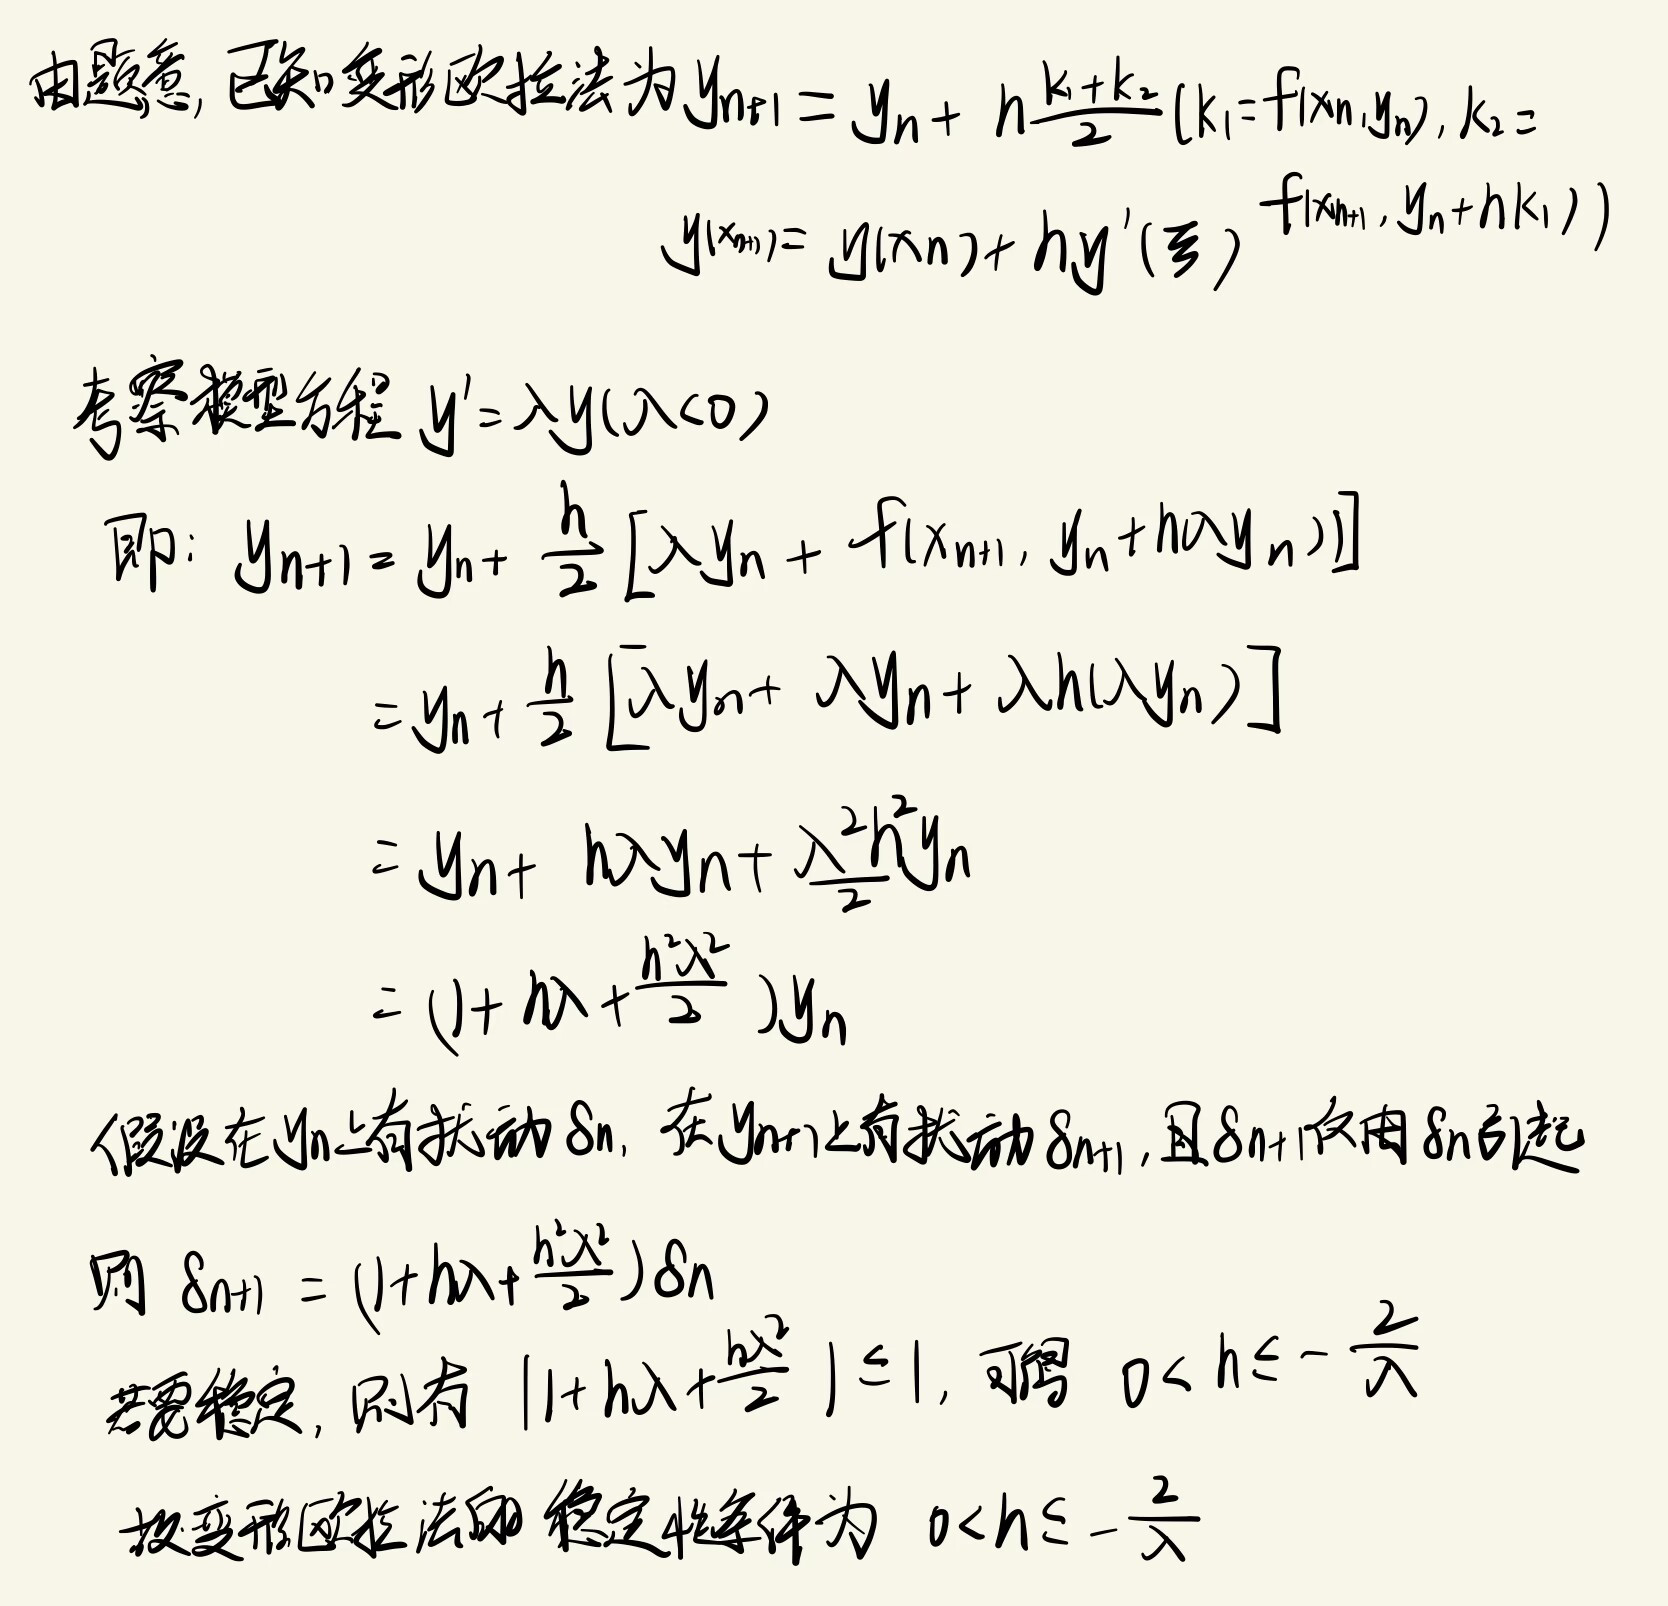 由题意,已知变形欧拉法为 y_{n+1} = y_n + h\frac{k_1+k_2}{2} (k_1=f(x_n,y_n), k_2=
f(x_{n+1}, y_n+hk_1))
y(x_{n+1}) = y(x_n) + hy'(ξ)
考察模型方程 y'=λy(λ<0)
即: y_{n+1} = y_n + \frac{h}{2}[λy_n + f(x_{n+1}, y_n+hλy_n)]
= y_n + \frac{h}{2}[λy_n + λy_n + λh(λy_n)]
= y_n + hλy_n + \frac{λ^2h^2}{2}y_n
= (1+hλ+\frac{h^2λ^2}{2})y_n
假设在y_n上有扰动δ_n, 在y_{n+1}上有扰动δ_{n+1}, 且δ_{n+1}仅由δ_n引起
则 δ_{n+1} = (1+hλ+\frac{h^2λ^2}{2})δ_n
若要稳定, 则有 |1+hλ+\frac{hλ^2}{2}| ≤ 1, 可得 0<h≤-\frac{2}{λ}
故变形欧拉法的稳定性条件为 0<h≤-\frac{2}{λ}